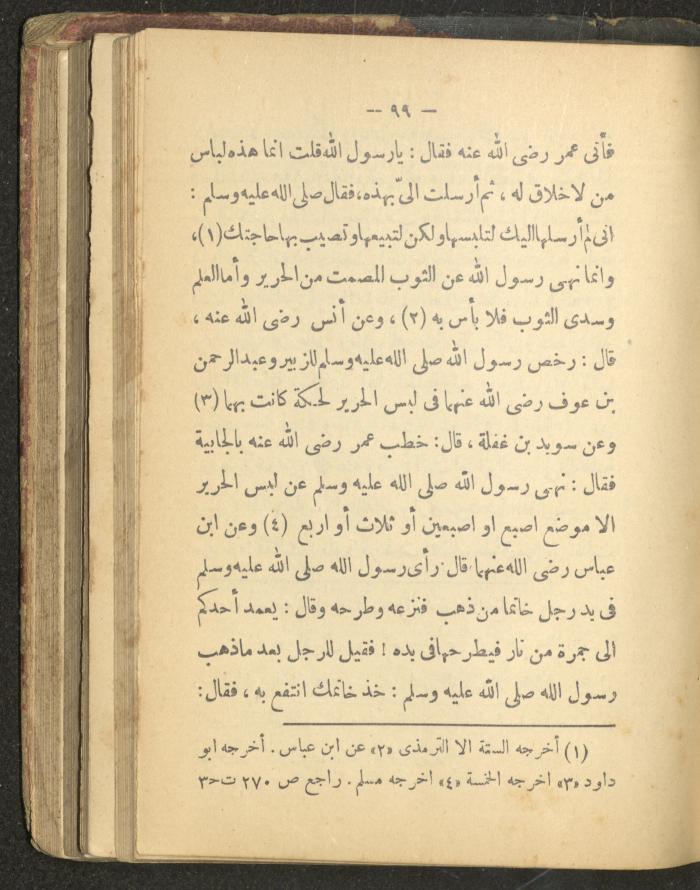 — ٩٩ —
فأتى عمر رضى الله عنه فقال : يارسول الله قلت انما هذه لباس
من لاخلاق له ، ثم أرسلت الىّ بهذه، فقال صلى الله عليه وسلم :
انى لم أرسلها اليك لتلبسها ولكن لتبيعها وتصيب بها حاجتك (١)،
وانما نهى رسول الله عن الثوب المصمت من الحرير وأما العلم
وسدى الثوب فلا بأس به (٢) ، وعن أنس رضى الله عنه ،
قال : رخص رسول الله صلى الله عليه وسلم للزبير وعبد الرحمن
بن عوف رضى الله عنهما فى لبس الحرير لحكة كانت بهما (٣)
وعن سويد بن غفلة ، قال : خطب عمر رضى الله عنه بالجابية
فقال : نهى رسول الله صلى الله عليه وسلم عن لبس الحرير
الا موضع اصبع او اصبعين أو ثلاث أو اربع (٤) وعن ابن
عباس رضى الله عنهما قال رأى رسول الله صلى الله عليه وسلم
فى يد رجل خاتما من ذهب فنزعه وطرحه وقال : يعمد أحدكم
الى جمرة من نار فيطرحها فى يده ! فقيل للرجل بعد ماذهب
رسول الله صلى الله عليه وسلم : خذ خاتمك انتفع به ، فقال :
(١) أخرجه الستة الا الترمذى «٢» عن ابن عباس . أخرجه ابو
داود «٣» اخرجه الخمسة «٤» اخرجه مسلم . راجع ص ٢٧٠ ت ح٣